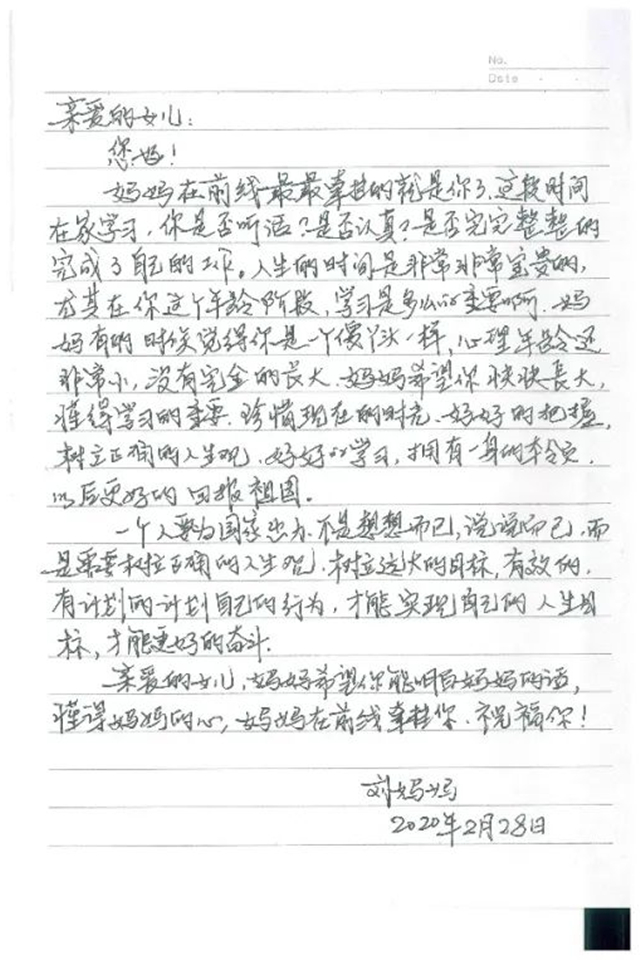 No.
Date
亲爱的女儿：
您好！
妈妈在前线最最牵挂的就是你了，这段时间
在家学习，你是否听话？是否认真？是否完完整整的
完成了自己的工作。人生的时间是非常非常宝贵的，
尤其在你这个年龄阶段，学习是多么的重要啊，妈
妈有的时候觉得你是一个傻丫头一样，心理年龄还
非常小，没有完全的长大，妈妈希望你快快長大，
懂得学习的重要，珍惜现在的时光，好好的把握，
树立正确的人生观，好好的学习，拥有一身的本领
以后更好的回报祖国。
一个人要为国家出力不是想想而已，说说而已，而
是需要树立正确的人生观，树立远大的目标，有效的，
有计划的计划自己的行为，才能实现自己的人生目
标，才能更好的奋斗。
亲爱的女儿，妈妈希望你能明白妈妈的话，
懂得妈妈的心，妈妈在前线牵挂你，祝福你！
刘妈妈
2020年2月28日